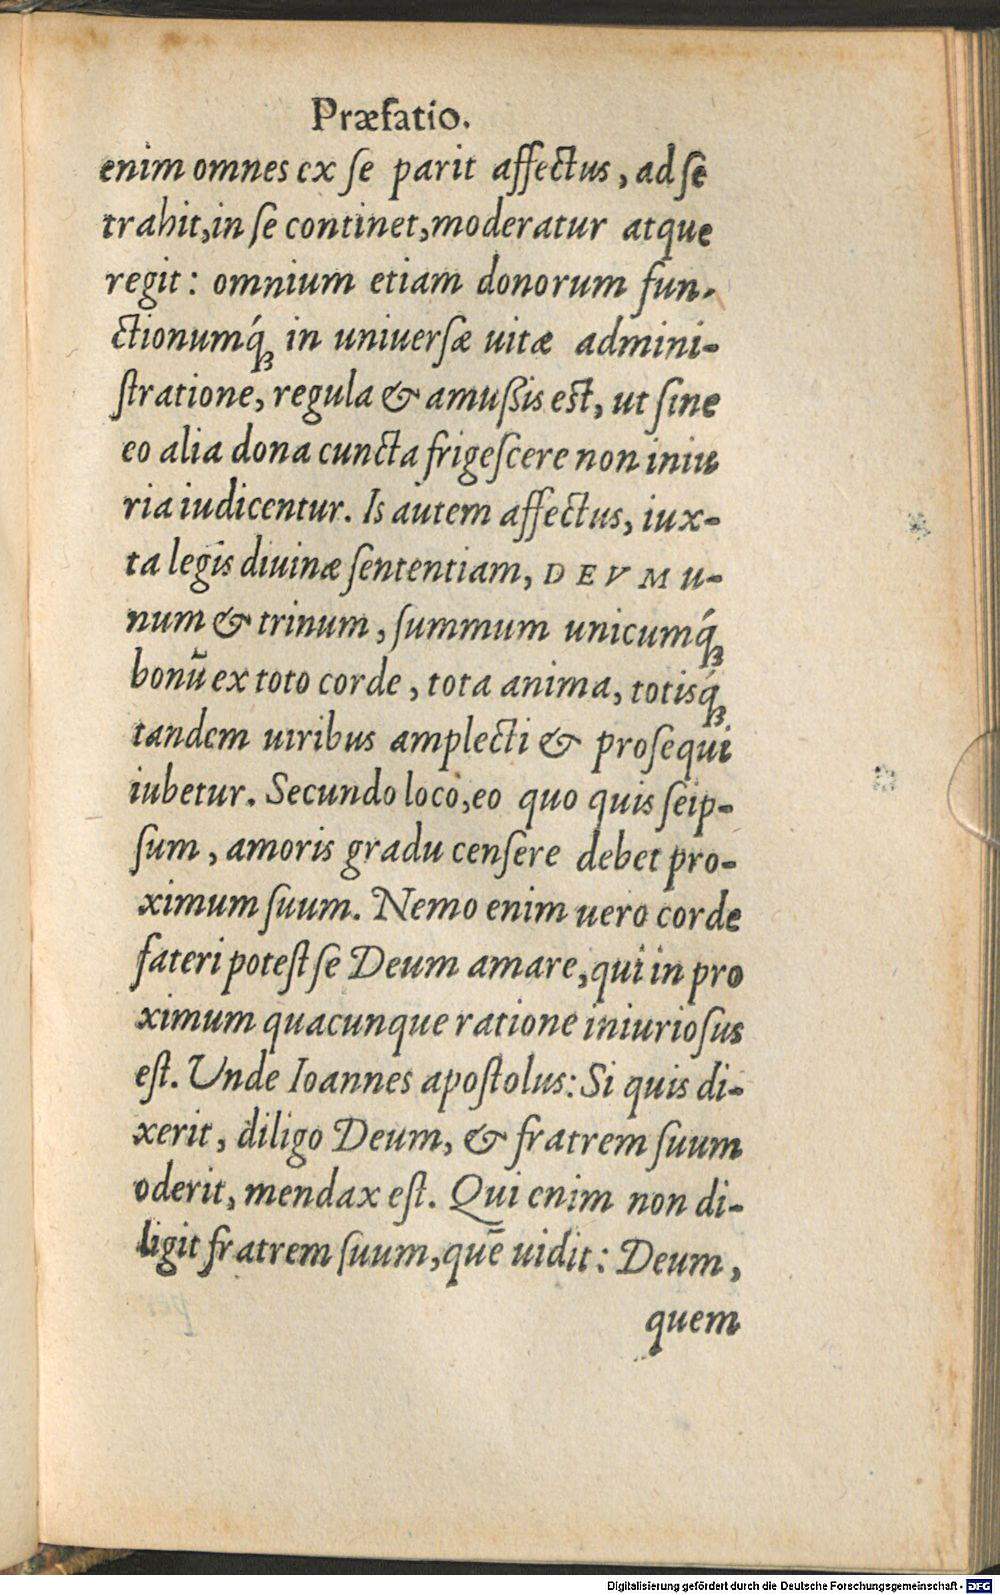 Præfatio.
enim omnes ex se parit affectus, ad se
trahit, in se continet, moderatur atque
regit: omnium etiam donorum fun-
ctionumq́; in uniuersæ uitæ admini-
stratione, regula & amußis est, ut sine
eo alia dona cuncta frigescere non iniu
ria iudicentur. Is autem affectus, iux-
ta legis diuinæ sententiam, DEVM u-
num & trinum, summum unicumq́;
bonū ex toto corde, tota anima, totisq́;
tandem uiribus amplecti & prosequi
iubetur. Secundo loco, eo quo quis seip-
sum, amoris gradu censere debet pro-
ximum suum. Nemo enim uero corde
fateri potest se Deum amare, qui in pro
ximum quacunque ratione iniuriosus
est. Unde Ioannes apostolus: Si quis di-
xerit, diligo Deum, & fratrem suum
oderit, mendax est. Qui enim non di-
ligit fratrem suum, quē uidit: Deum,
quem
Digitalisierung gefördert durch die Deutsche Forschungsgemeinschaft - DFG